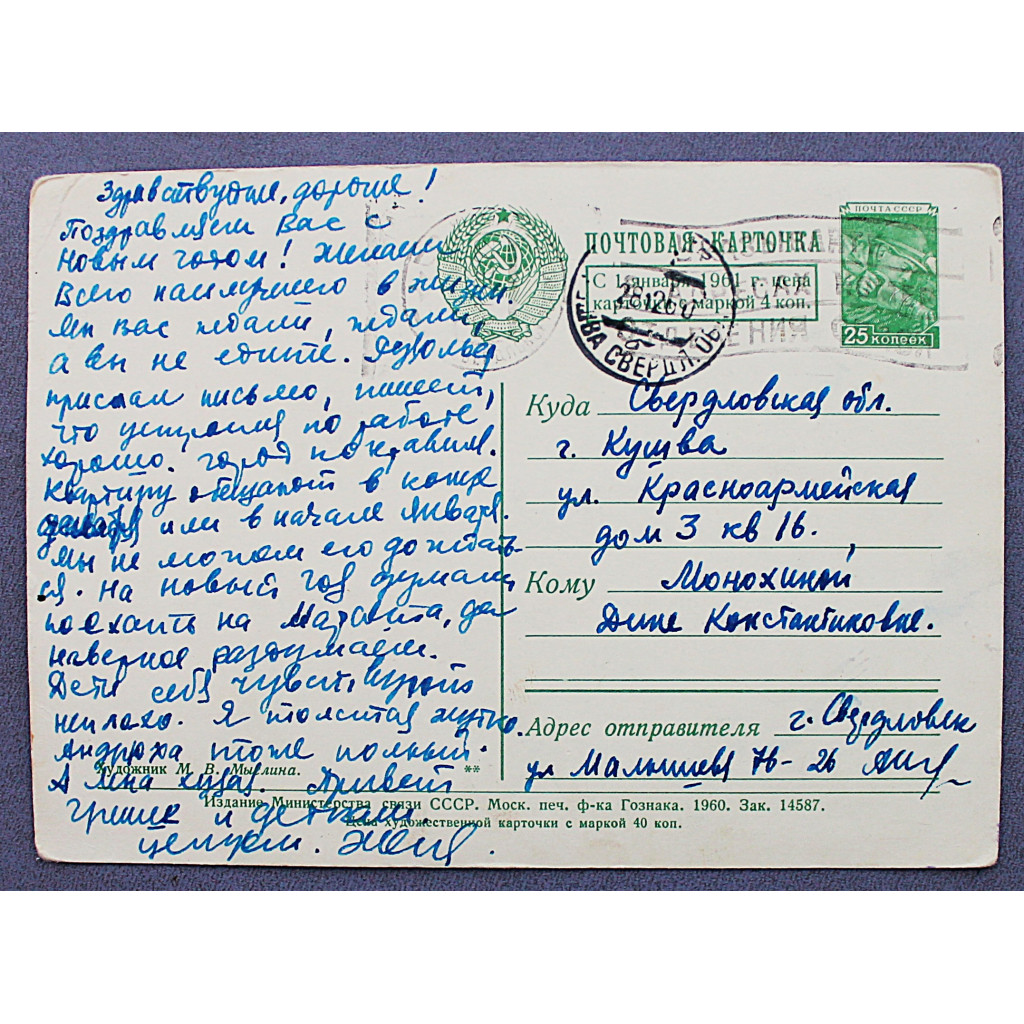 Здравствуйте, дорогие!
Поздравляем Вас с
Новым годом! Желаем
Всего наилучшего в жизни.
Мы вас ждали, ждали,
а вы не едите.
прислал письмо, пишет,
что устроился по работе
хорошо. город понравился.
Квартиру обещают в конце
декабря или в начале Января.
Мы не можем его дождать-
ся. На новый год думали
поехать на да
наверное раздумаем.
Дети себя чувствуют
неплохо. Я толстая жутко.
Андрюха тоже полный.
А Лена худая. Привет
Грише и деткам
целуем.
ПОЧТОВАЯ КАРТОЧКА
С 1 января 1961 г. цена
карточки с маркой 4 коп.
ПОЧТА СССР
25 КОПЕЕК
28 12 60
КУШВА СВЕРДЛ. ОБЛ.
Куда Свердловская обл.
г. Кушва
ул. Красноармейская
дом 3 кв 16.
Кому Монохиной
Дине Константиновне.
Адрес отправителя г. Свердловск
ул Малышева 76-26
Художник М. В. Мыслина. **
Издание Министерства связи СССР. Моск. печ. ф-ка Гознака. 1960. Зак. 14587.
Цена художественной карточки с маркой 40 коп.